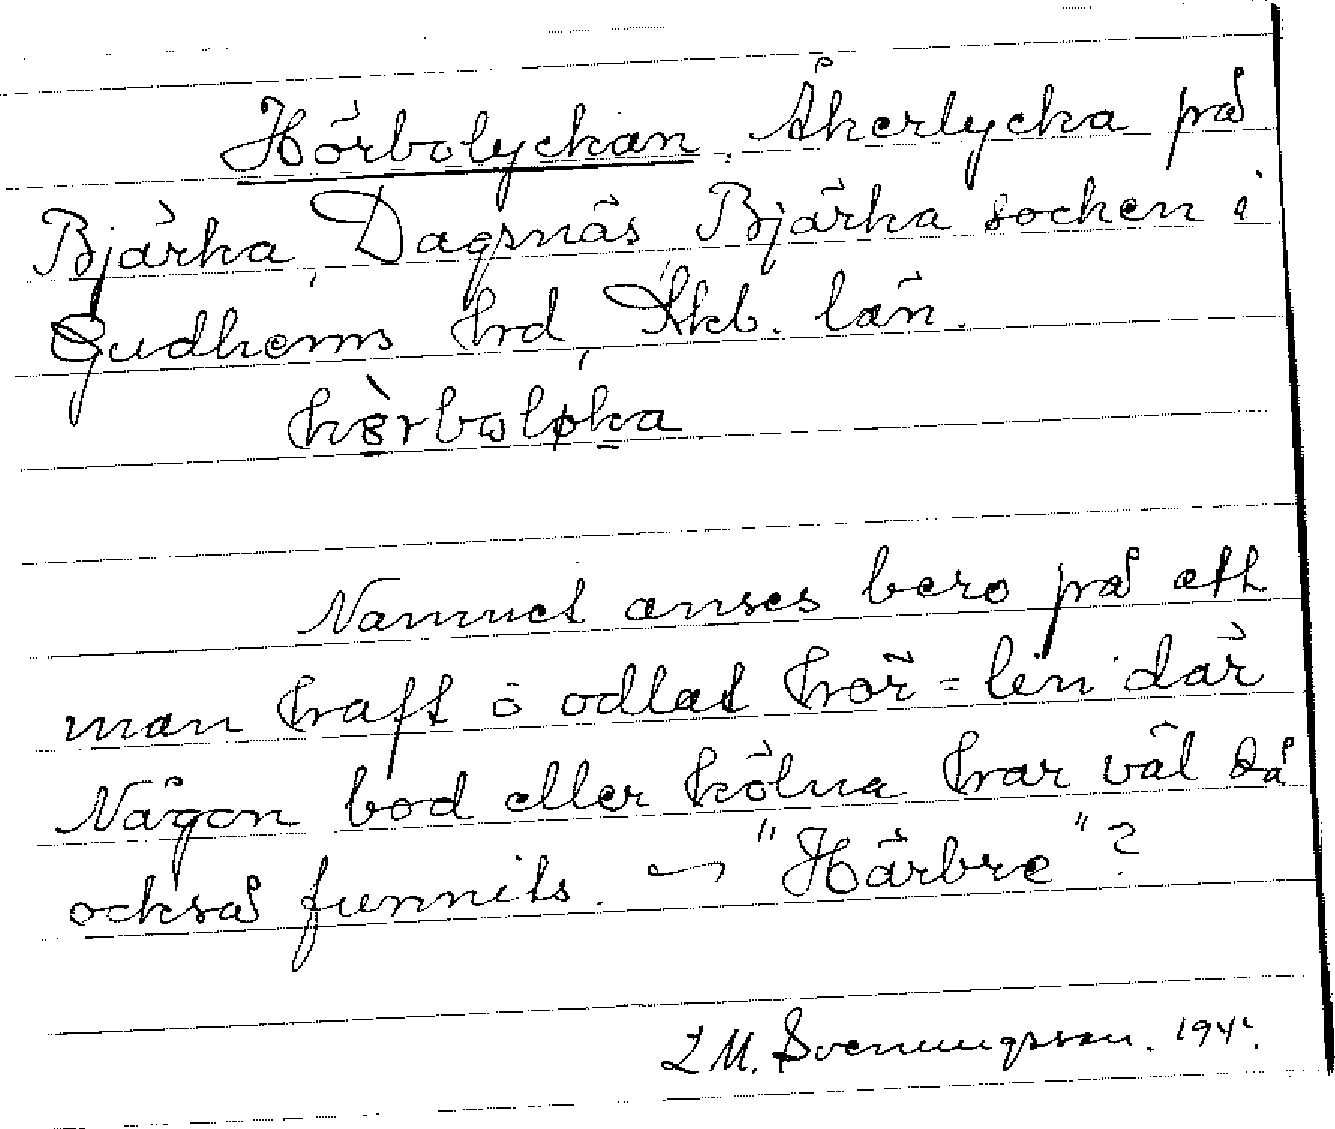 Hörbolyckan. Åkerlycka på
Bjärka, Dagsnäs Bjärka socken i
Gudhems hrd, Skb. län.
Namnet anses bero på att
man haft o odlat hör = lin där
Någon bod eller kölna har väl då
också funnits. "Härbre"?
L M. Svenungsson.